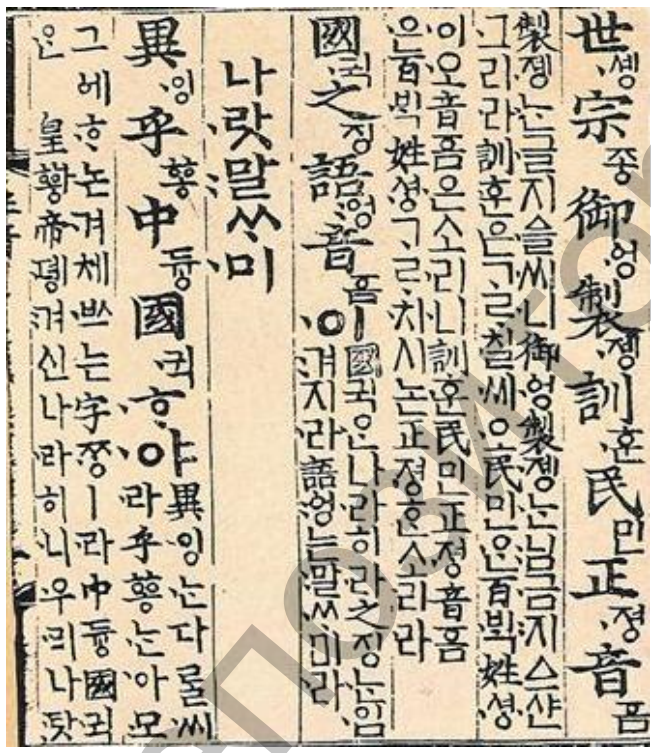 世솅〮宗조ᇰ御ᅌᅥᆼ〮製졩〮訓훈〮民민正져ᇰ〮音ᅙᅳᆷ
製졩〮ᄂᆞᆫ〮글지ᅀᅳᆯ〮씨니〮御ᅌᅥᆼ〮製졩〮ᄂᆞᆫ〮님금〮지ᅀᅳ샨〮
그〮리라〮訓훈〮은〮ᄀᆞᄅᆞ칠〮씨오〮民민ᄋᆞᆫ〮百ᄇᆡᆨ〮姓셔ᇰ〮
이〮오〮音ᅙᅳᆷ은〮소리〮니〮訓훈〮民민正져ᇰ〮音ᅙᅳᆷ
은〮百ᄇᆡᆨ〮姓셔ᇰ〮ᄀᆞᄅᆞ치〮시논〮正져ᇰ〮ᄒᆞᆫ소리〮라
國귁〮之징語ᅌᅥᆼ〮音ᅙᅳᆷ이〮
國귁〮ᄋᆞᆫ〮나라〮히〮라〮之징ᄂᆞᆫ〮입
겨지〮라〮語ᅌᅥᆼ〮는〮말〯ᄊᆞ미〮라〮
나랏〮말〯ᄊᆞ미〮
異잉〮乎ᅘᅩᆼ中듀ᇰ國귁〮ᄒᆞ〮야〮
異잉〮ᄂᆞᆫ〮다ᄅᆞᆯ〮씨〮
라〮乎ᅘᅩᆼᄂᆞᆫ〮아〮모
그ᅌᅦ〮ᄒᆞ논〮겨체〮ᄡᅳ는〮字ᄍᆞᆼ〮ㅣ라〮中듀ᇰ國귁〮
ᄋᆞᆫ〮皇ᅘᅪᇰ帝뎽〮겨신〮나라〮히〮니〮우리〮나랏〮